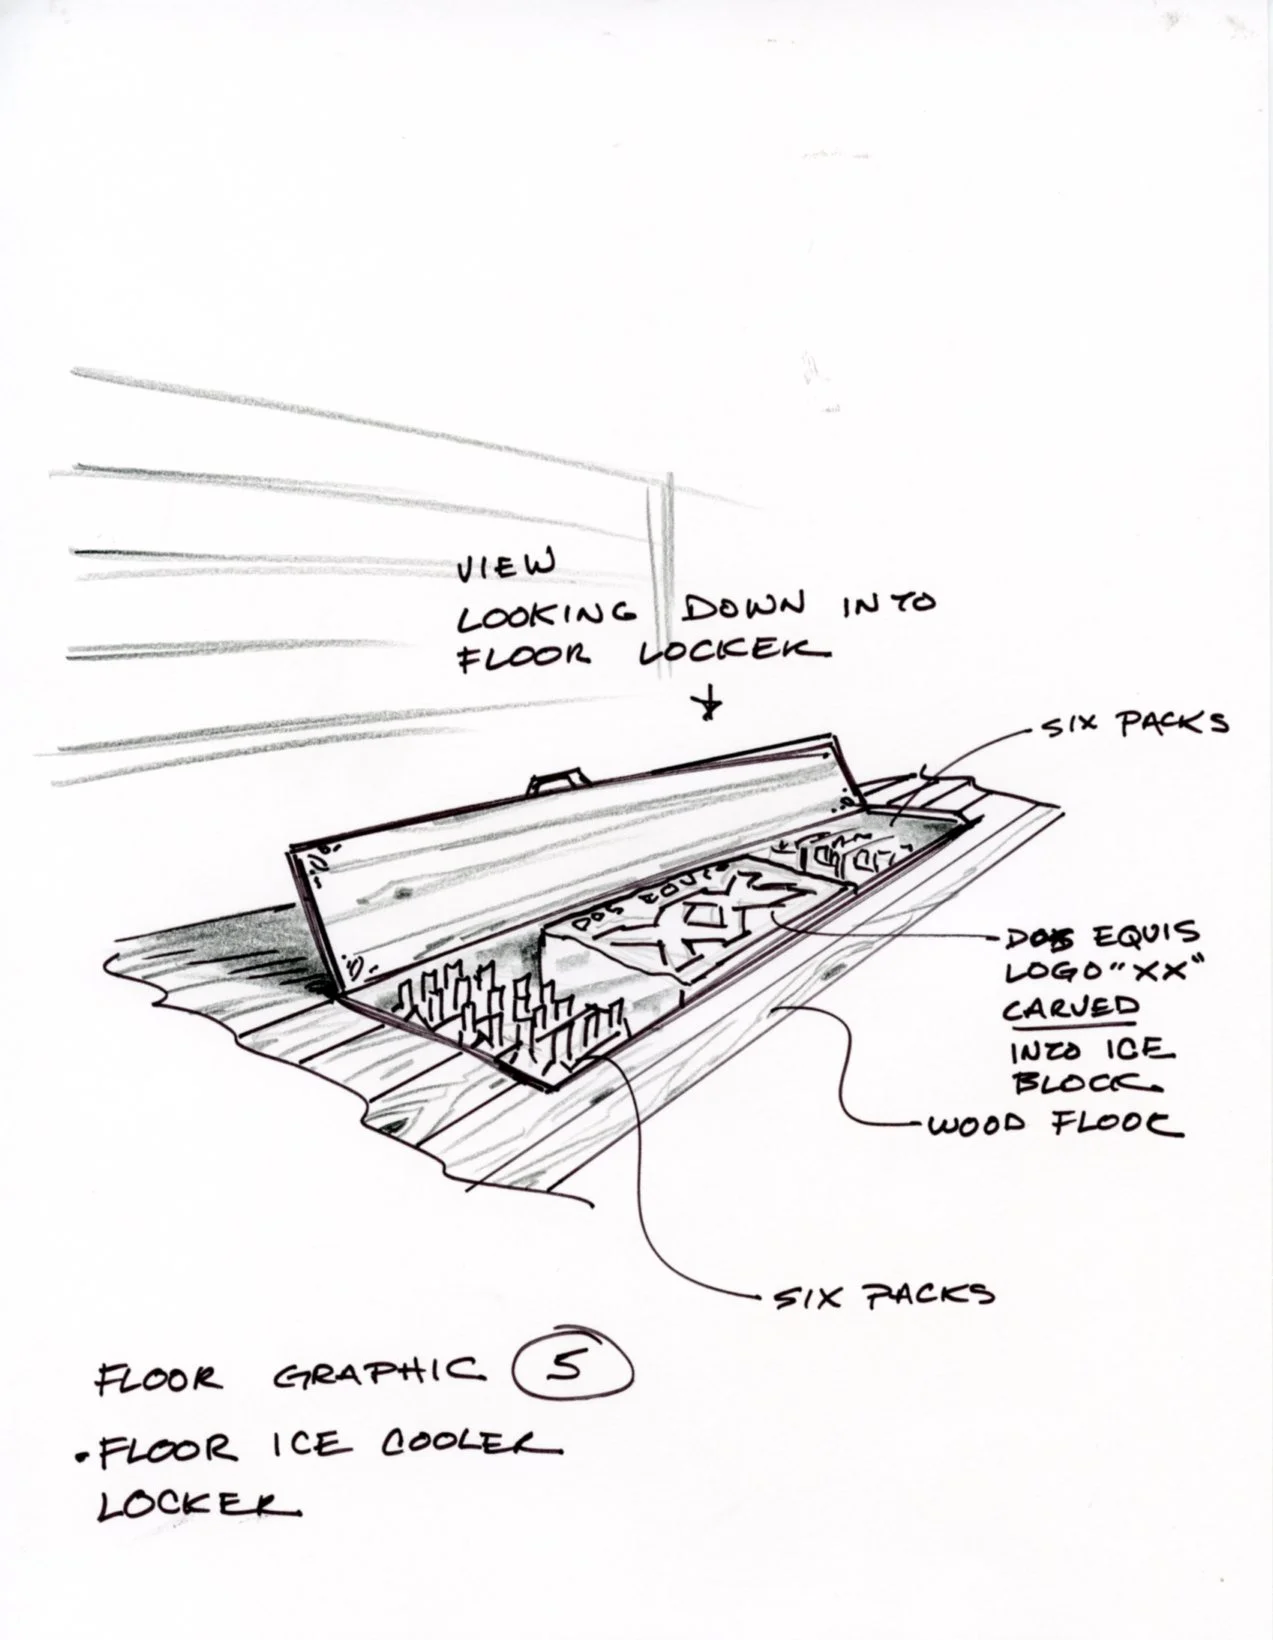 VIEW
LOOKING DOWN INTO
FLOOR LOCKER
SIX PACKS
DOS EQUIS
DOS EQUIS
LOGO "XX"
CARVED
INTO ICE
BLOCK
WOOD FLOOR
SIX PACKS
FLOOR GRAPHIC 5
• FLOOR ICE COOLER
LOCKER